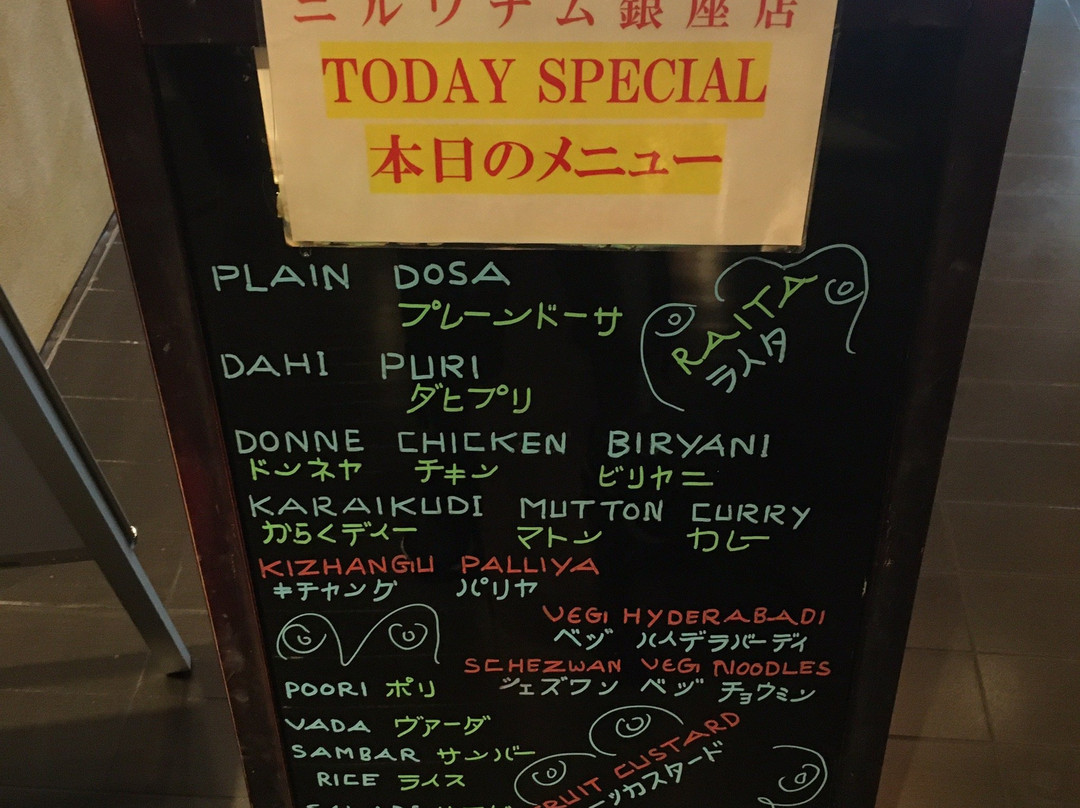 ニルワナム銀座店
TODAY SPECIAL
本日のメニュー
PLAIN DOSA
プレーンドーサ
RAITA
ライタ
DAHI PURI
ダヒプリ
DONNE CHICKEN BIRYANI
ドンネヤ チキン ビリヤニ
KARAIKUDI MUTTON CURRY
からくディー マトン カレー
KIZHANGU PALLIYA
キチャング パリヤ
VEGI HYDERABADI
ベッヂ ハイデラバーディ
SCHEZWAN VEGI NOODLES
シェズワン ベッヂ チョウミン
POORI ポリ
VADA ヴァーダ
SAMBAR サンバー
RICE ライス
FRUIT CUSTARD
ッカスタード